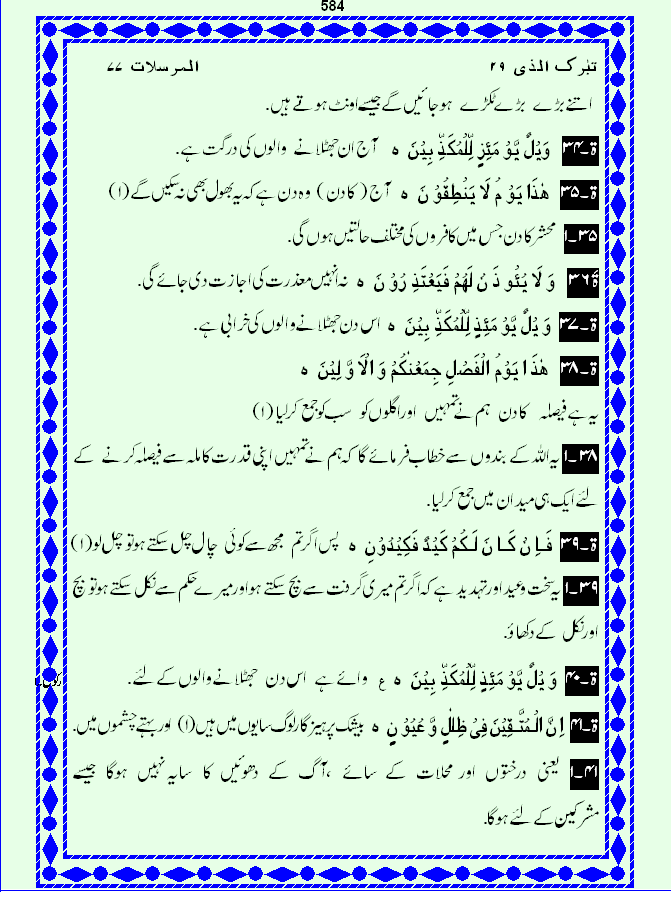 584
تبٰرک الذی ۲۹ المرسلات ۷۷
اتنے بڑے بڑے ٹکڑے ہو جائیں گے جیسے اونٹ ہوتے ہیں۔
ۃ۔۳۴ وَیْلٌ یَّوْ مَئِذٍ لِّلْمُکَذِّ بِیْنَ ہ آج ان جھٹلانے والوں کی درگت ہے۔
ۃ۔۳۵ ھٰذَا یَوْ مُ لَا یَنْطِقُوْ نَ ہ آج (کا دن) وہ دن ہے کہ یہ بھول بھی نہ سکیں گے (۱)
۳۵۔۱ محشر کا دن جس میں کافروں کی مختلف حالتیں ہوں گی۔
ۃ۳۶ وَ لَا یُئْو ذَ نُ لَھُمْ فَیَعْتَذِ رُوْ نَ ہ نہ انہیں معذرت کی اجازت دی جائے گی۔
ۃ۔۳۷ وَ یْلٌ یَّوْ مَئِذٍ لِّلْمُکَذِّ بِیْنَ ہ اس دن جھٹلانے والوں کی خرابی ہے۔
ۃ۔۳۸ ھٰذَا یَوْمُ الْفَصْلِ جِمَعْنٰکُمْ وَ الْاَ وَّ لِیْنَ ہ
یہ ہے فیصلہ کا دن ہم نے تمہیں اور اگلوں کو سب کو جمع کر لیا (۱)
۳۸۔۱ یہ اللہ کے بندوں سے خطاب فرمائے گا کہ ہم نے تمہیں اپنی قدرت کاملہ سے فیصلہ کرنے کے
لئے ایک ہی میدان میں جمع کر لیا۔
ۃ۔۳۹ فَاِنْ کَانَ لَکُمْ کَیْدٌ فَکِیْدُوْنِ ہ پس اگر تم مجھ سے کوئی چال چل سکتے ہو تو چل لو (۱)
۳۹۔۱ یہ سخت وعید اور تہدید ہے کہ اگر تم میری گرفت سے بچ سکتے ہو اور میرے حکم سے نکل سکتے ہو تو بچ
اور نکل کے دکھاؤ۔
ۃ۔۴۰ وَ یْلٌ یَّوْ مَئِذٍ لِّلْمُکَذِّ بِیْنَ ہ ع وائے ہے اس دن جھٹلانے والوں کے لئے۔
ۃ۔۴۱ اِنَّ الْمُتَّقِیْنَ فِیْ ظِلٰلٍ وَّ عُیُوْ نٍ ہ بیشک پرہیزگار لوگ سایوں میں ہیں (۱) اور بہتے چشموں میں۔
۴۱۔۱ یعنی درختوں اور محلات کے سائے ،آگ کے دھوئیں کا سایہ نہیں ہوگا جیسے
مشرکین کے لئے ہوگا۔